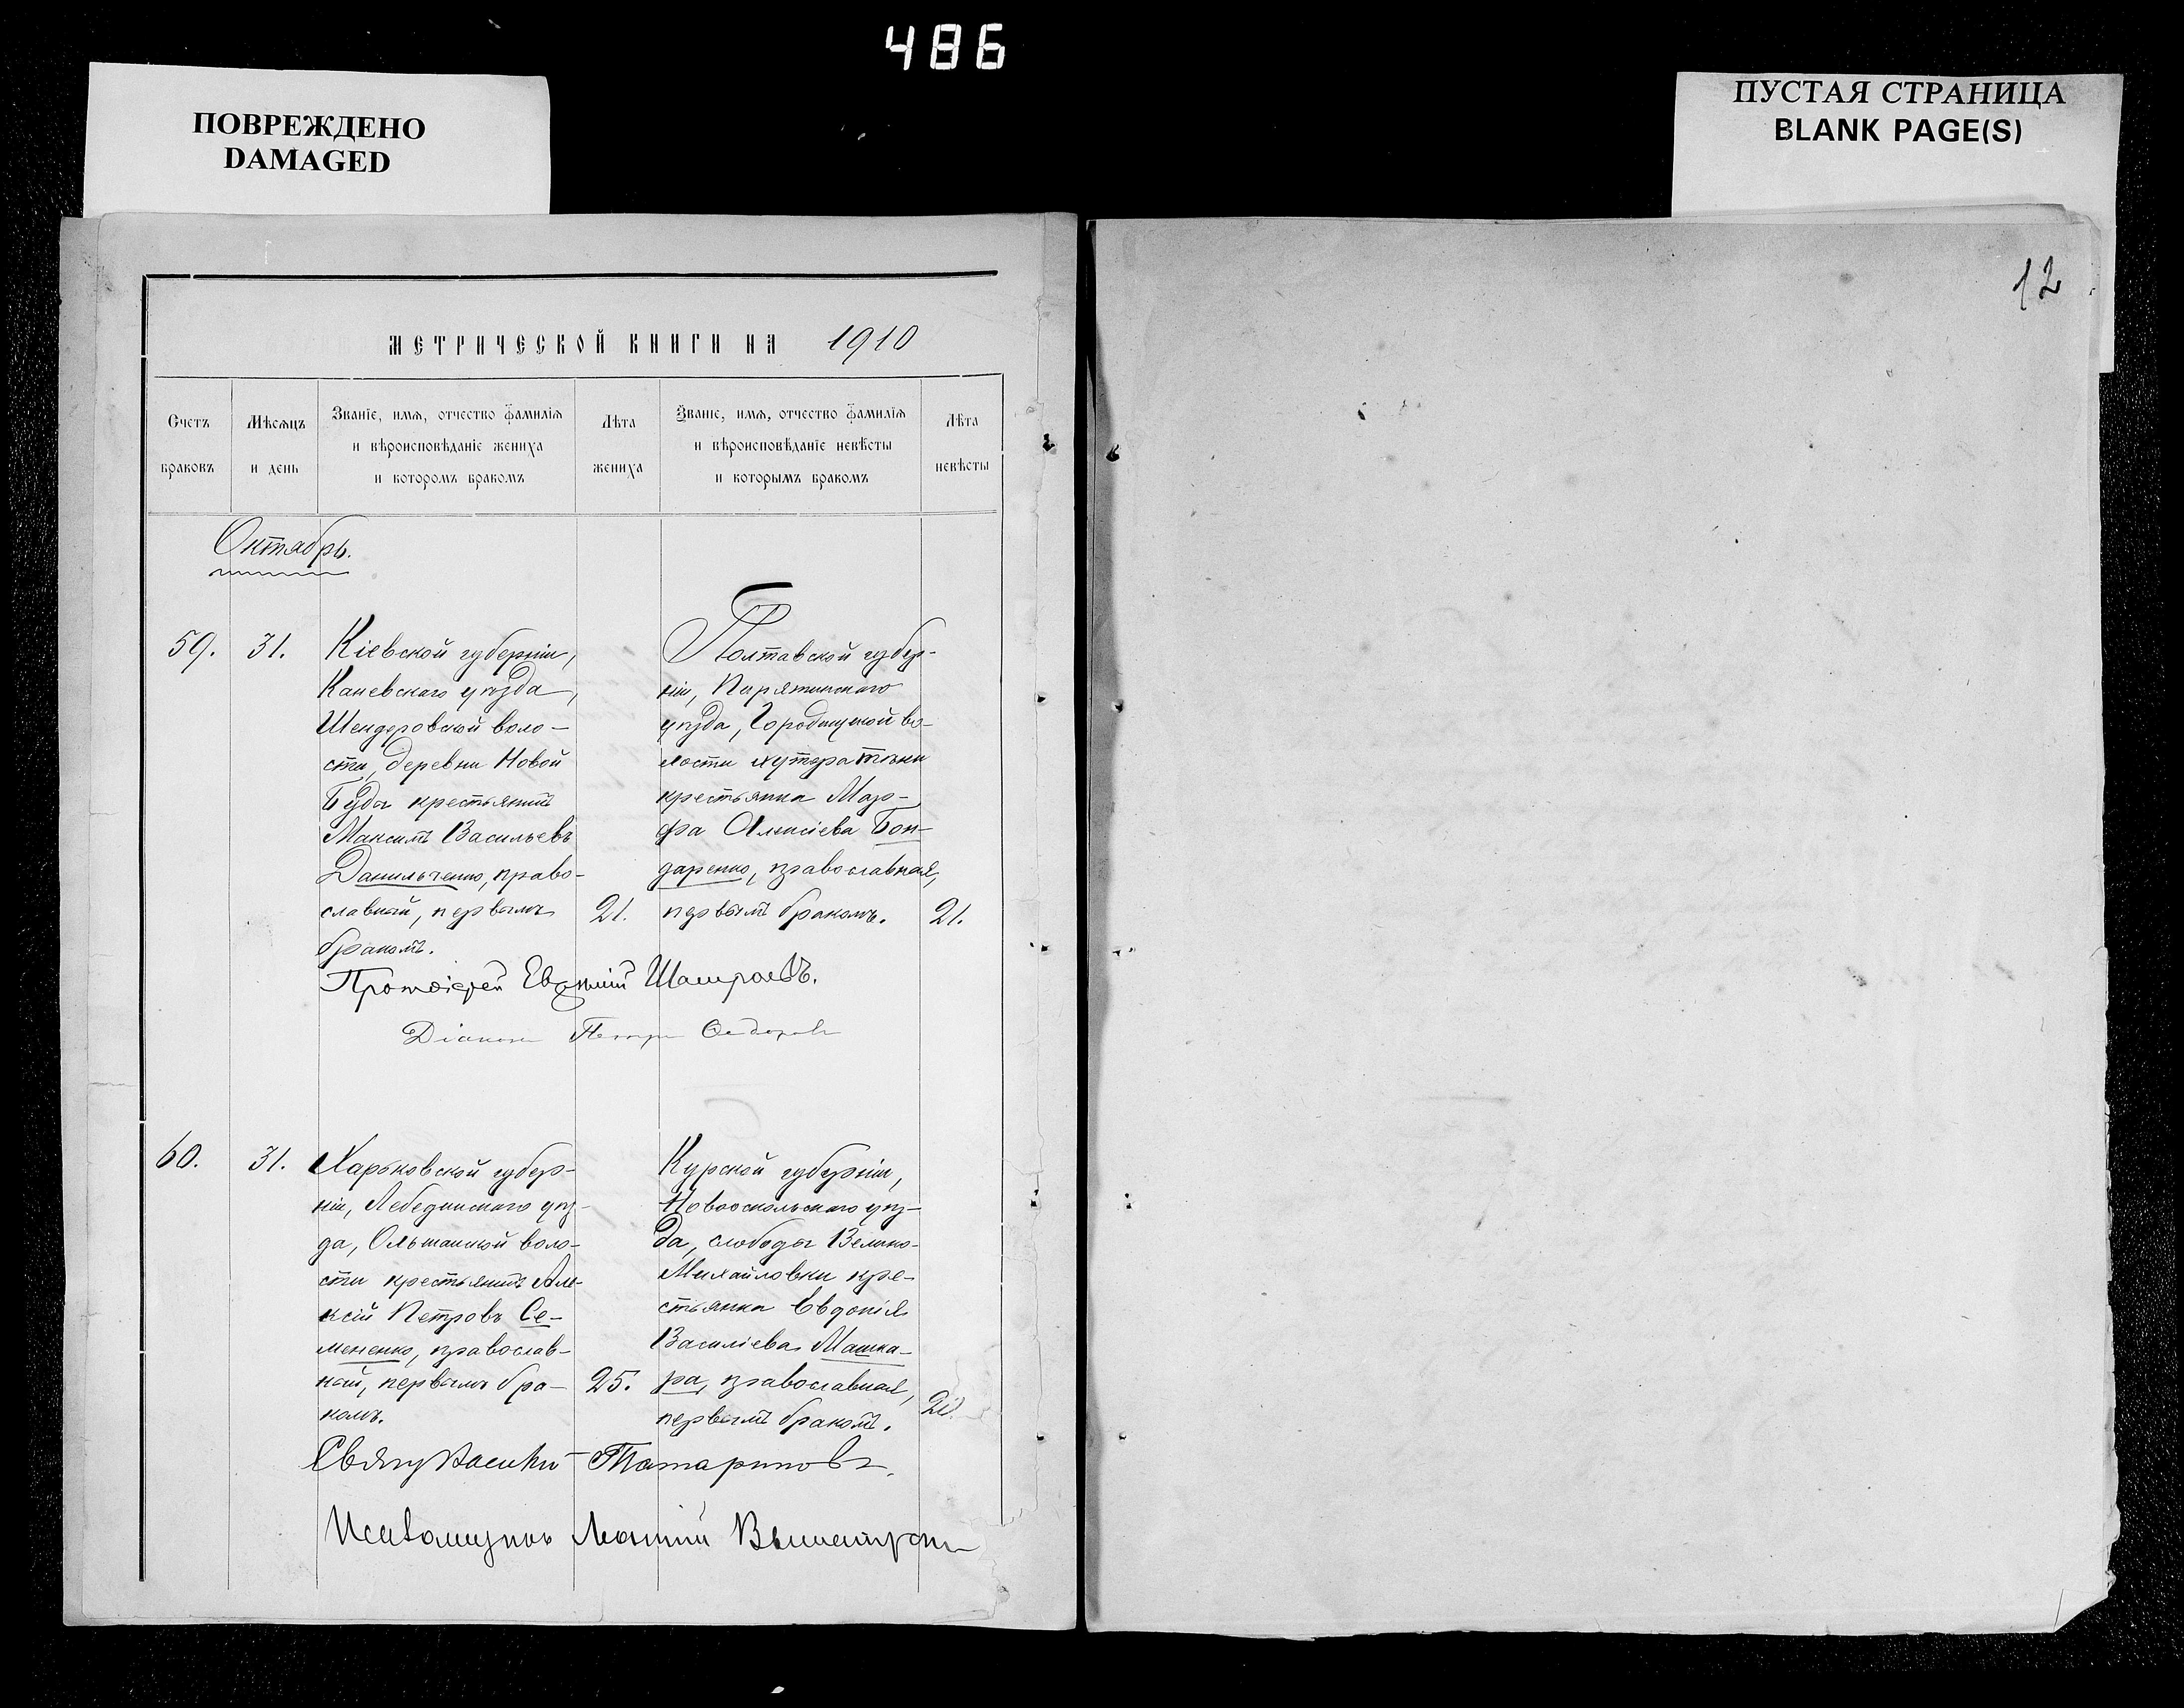 486
ПОВРЕЖДЕНО
DAMAGED
ПУСТАЯ СТРАНИЦА
BLANK PAGE(S)
12
МЕТРИЧЕСКОЙ КНИГИ НА 1910
Счетъ браковъ
Мѣсяцъ и день
Званіе, имя, отчество фамилія
и вѣроисповѣданіе жениха
и которомъ бракомъ
Лѣта жениха
Званіе, имя, отчество фамилія
и вѣроисповѣданіе невѣсты
и которымъ бракомъ
Лѣта невѣсты
Октябрь.
59. 31.
Кіевской губерніи,
Каневскаго уѣзда,
Шендеровской воло-
сти, деревни Новой
Буды крестьянинъ
Максимъ Васильевъ
Данильченко, право-
славный, первымъ
бракомъ.
21.
Полтавской губер-
ніи, Пирятинскаго
уѣзда, Городищской во-
лости хутора
крестьянка Мар-
фа Алексіева Бон-
даренко, православная,
первымъ бракомъ.
21.
Протоіерей Евгеній
Діаконъ Петръ Федоровъ
60. 31.
Харьковской губер-
ніи, Лебединскаго уѣз-
да, Ольшанской воло-
сти крестьянинъ Але-
ксій Петровъ Се-
мененко, православ-
ный, первымъ бра-
комъ.
25.
Курской губерніи,
Новооскольскаго уѣз-
да, слободы Велико-
Михайловки кре-
стьянка Евдокія
Василіева Машка-
ра, православная,
первымъ бракомъ.
Татариновъ.
Псаломщикъ